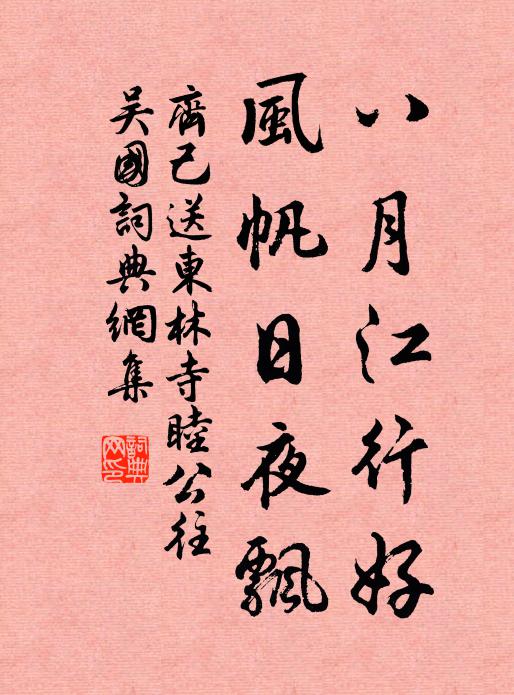 八月江行好
風帆日夜飄
齊己送東林寺睦公往
吳國詞典網集
詞典網印